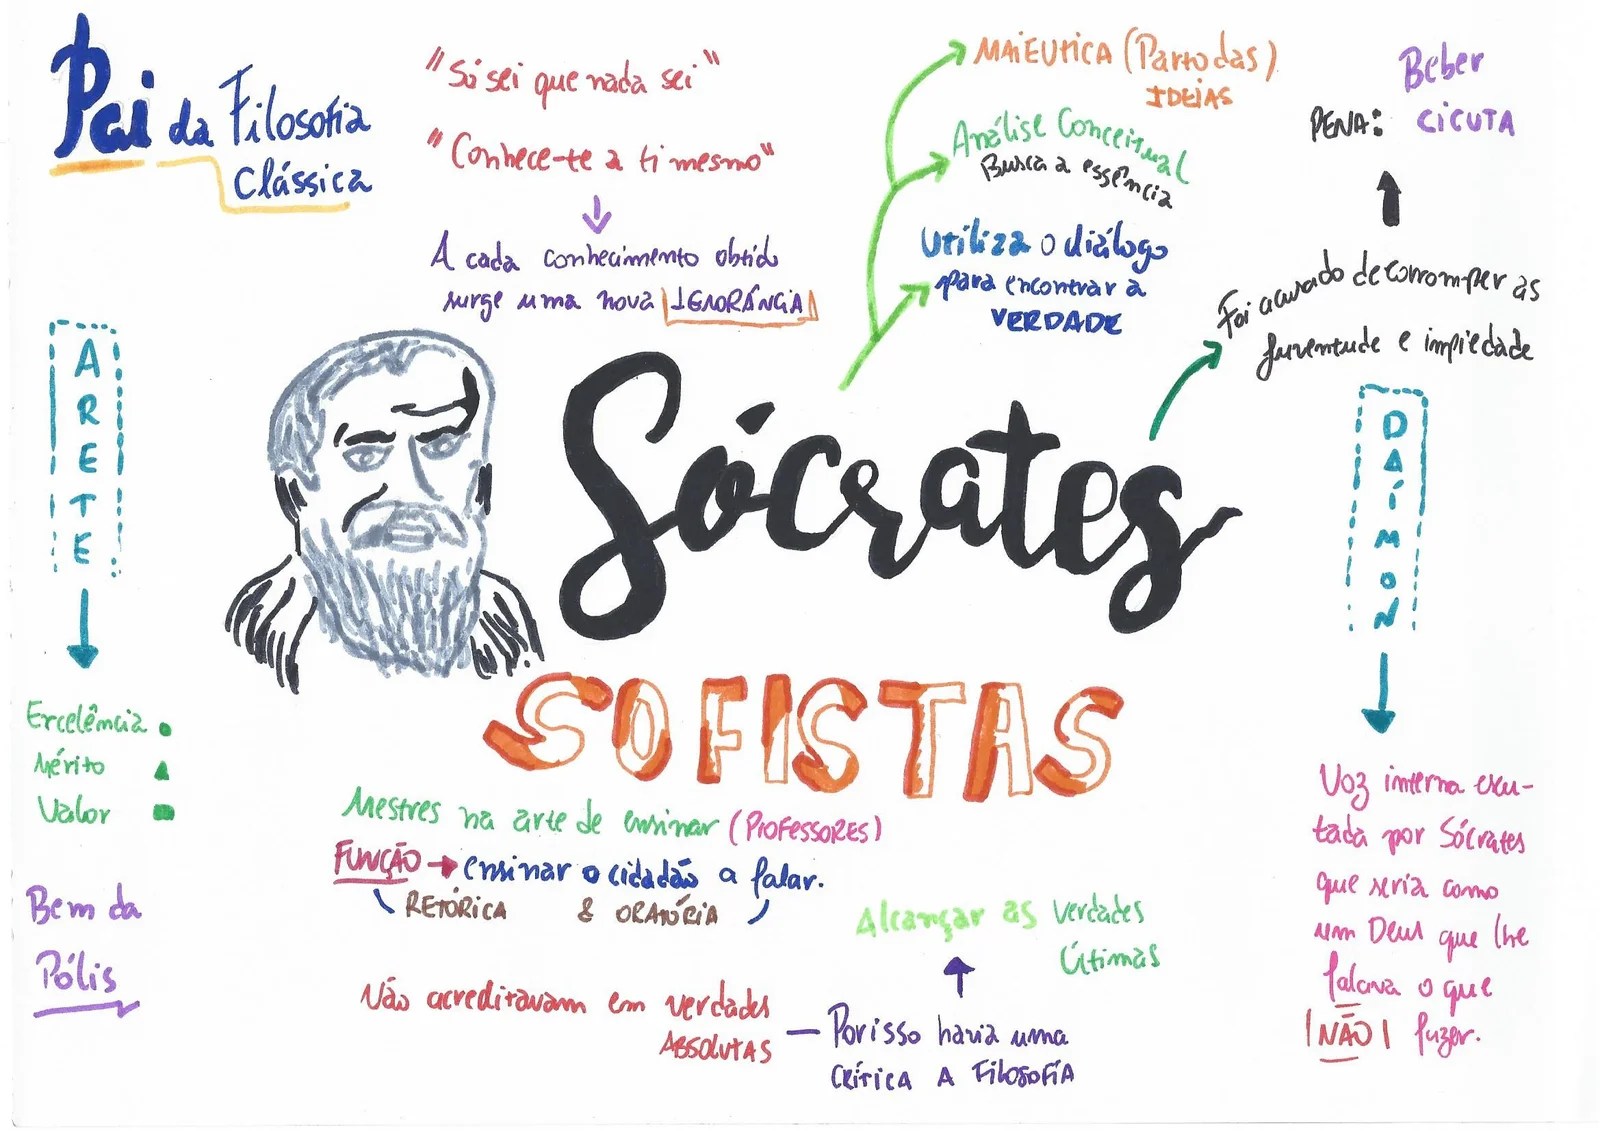 Pai da Filosofia
Clássica
"Só sei que nada sei"
"Conhece-te a ti mesmo"
A cada conhecimento obtido
surge uma nova IGNORÂNCIA
MAIEUTICA (Parto das)
IDEIAS
Análise Conceitual
Busca a essência
Utiliza o diálogo
para encontrar a
VERDADE
Beber
PENA: CICUTA
Foi acusado de corromper as
juventude e impiedade
ARETE
Sócrates
DAÍMON
SOFISTAS
Excelência
Mérito
Valor
Bem da
Pólis
Mestres na arte de ensinar (PROFESSORES)
FUNÇÃO → ensinar o cidadão a falar.
RETÓRICA & ORATÓRIA
Não acreditavam em verdades
ABSOLUTAS
Alcançar as verdades
Últimas
— Por isso havia uma
CRÍTICA A FILOSOFIA
Voz interna escu-
tada por Sócrates
que seria como
um Deus que lhe
falava o que
NÃO fazer.